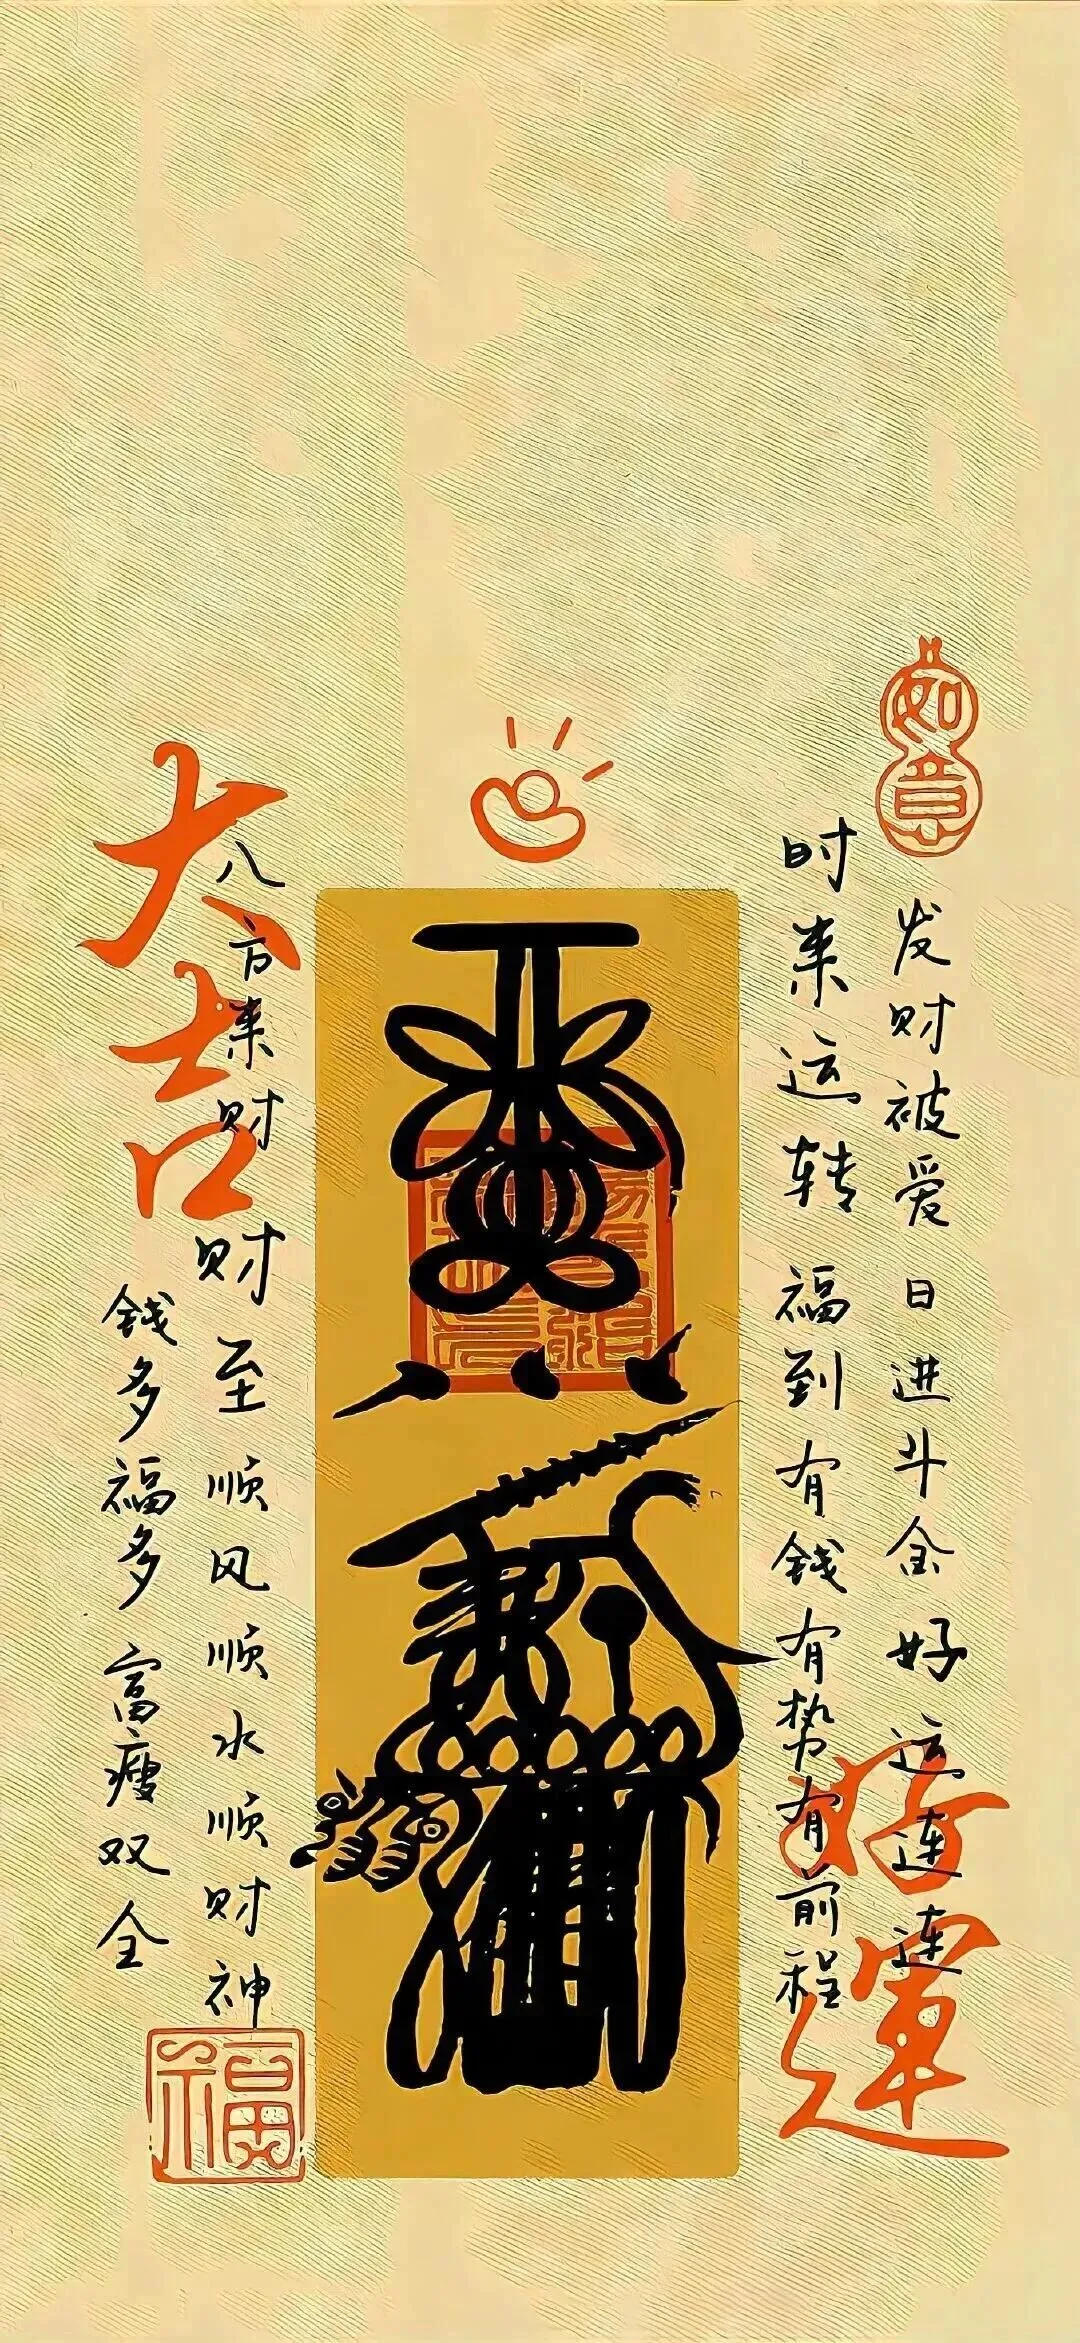 如意
发财被爱日进斗金好运连连
时来运转福到有钱有势有前程
好運
大吉
八方来财财至顺风顺水顺财神
錢多福多富瘦双全
福